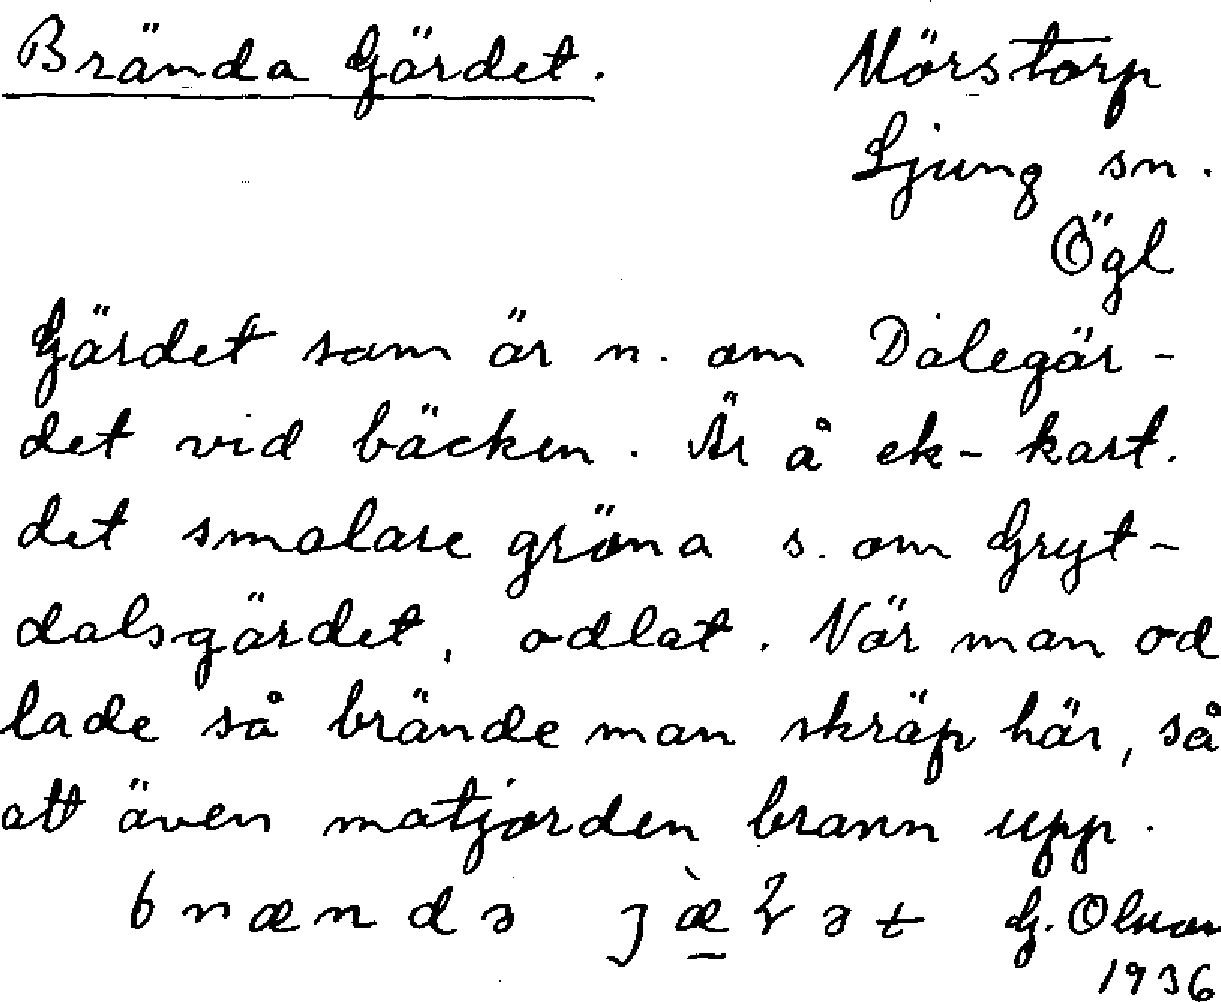 Brända Gärdet. Mörstorp
Ljung sn.
Ögl
Gärdet som är n. om Dalegär-
det vid bäcken. Är å ek-kart.
det smalare gröna s. om Gryt-
dalsgärdet, odlat. När man od
lade så brände man skräp här, så
att även matjorden brann upp.
G. Olson
1936